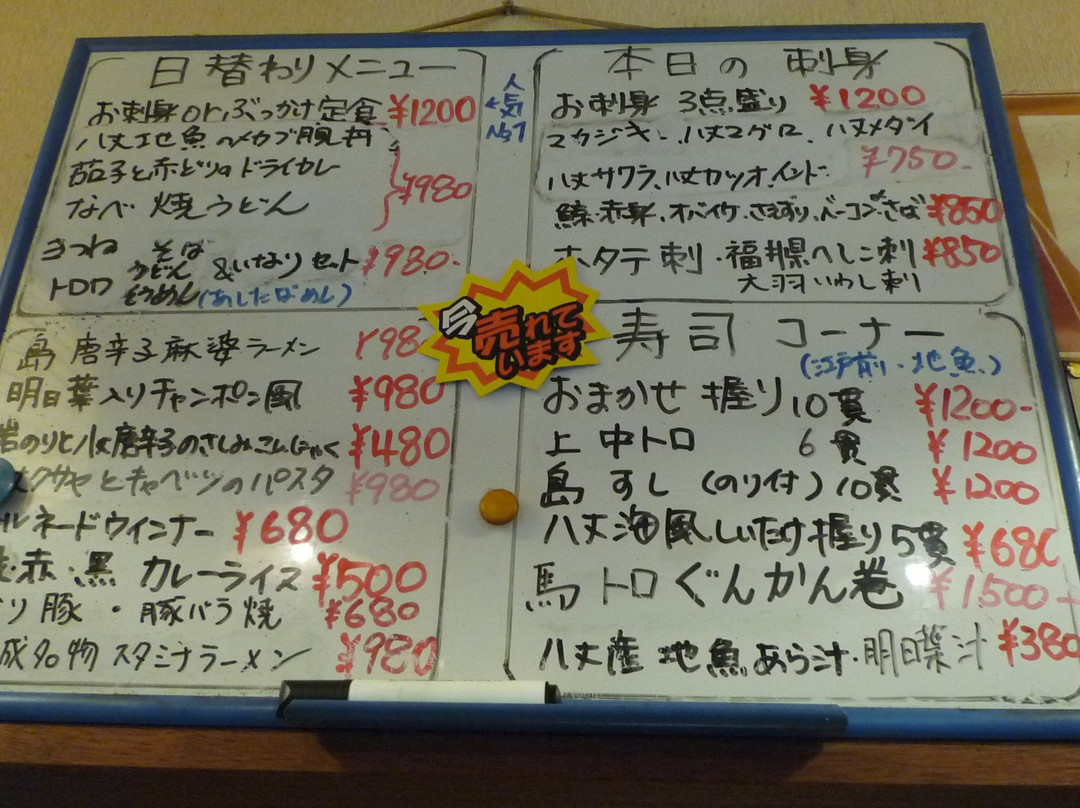 日替わりメニュー
お刺身orぶっかけ定食 ¥1200
人気No1
八丈地魚のメカブ腹丼
茄子と赤どりのドライカレー
なべ焼うどん
¥980
きつね そば
うどん &いなりセット ¥980-
トロロ そうめん(あしたばめし)
島唐辛子麻婆ラーメン ¥98
明日葉入りチャンポン風 ¥980
岩のりと八丈唐辛子のさしみこんにゃく ¥480
クサヤとキャベツのパスタ ¥980
ルネードウィンナー ¥680
赤・黒 カレーライス ¥500
豚・豚バラ焼 ¥680
名物 スタミナラーメン ¥980
今売れています
本日の刺身
お刺身 3点盛り ¥1200
マカジキ、八丈マグロ、八丈メダイ
八丈サワラ、八丈カツオ、インド ¥750-
鯨・赤身、オバイケ・さえずり、ベーコン・さば ¥850
ホタテ刺・福井県へしこ刺 ¥850
大羽いわし刺
寿司コーナー
(江戸前・地魚)
おまかせ握り10貫 ¥1200-
上中トロ 6貫 ¥1200
島すし(のり付)10貫 ¥1200
八丈海風しいたけ握り5貫 ¥680
馬トロぐんかん巻 ¥1,500-
八丈産地魚あら汁・明日葉汁 ¥380